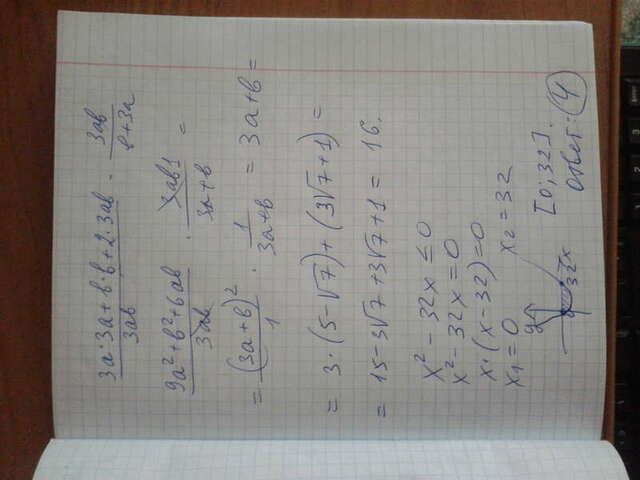 (3a·3a+b·b+2·3ab)/3ab · 3ab/(b+3a)
(9a²+b²+6ab)/3ab · 3ab1/(3a+b) =
= (3a+b)²/1 · 1/(3a+b) = 3a+b =
= 3·(5-√7)+(3√7+1) =
= 15-3√7+3√7+1 = 16.
x² - 32x ≤ 0
x² - 32x = 0
x·(x-32)=0
x₁=0 x₂=32
[0;32].
32 x
Ответ: 4